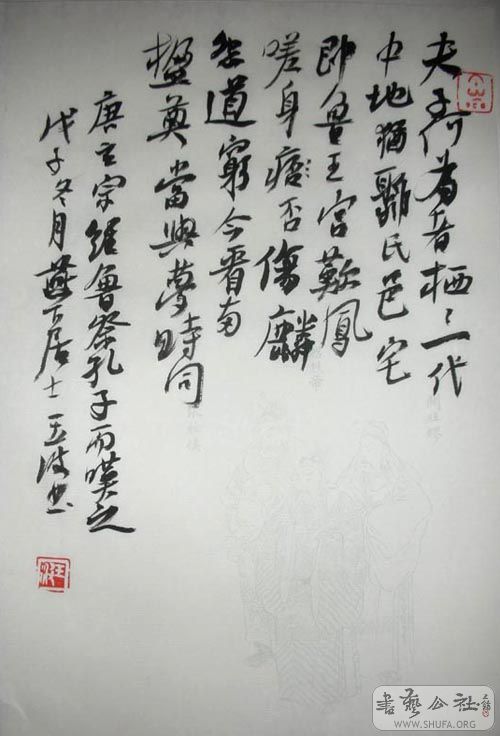 夫子何為者栖〻一代
中地猶鄹民邑宅
即魯王宮歎鳳
嗟身否傷麟
怨道窮今看兩
楹奠當與夢時同
唐玄宗經魯祭孔子而嘆之
戊子冬月燕下居士王波書
書藝公社
WWW.SHUFA.ORG